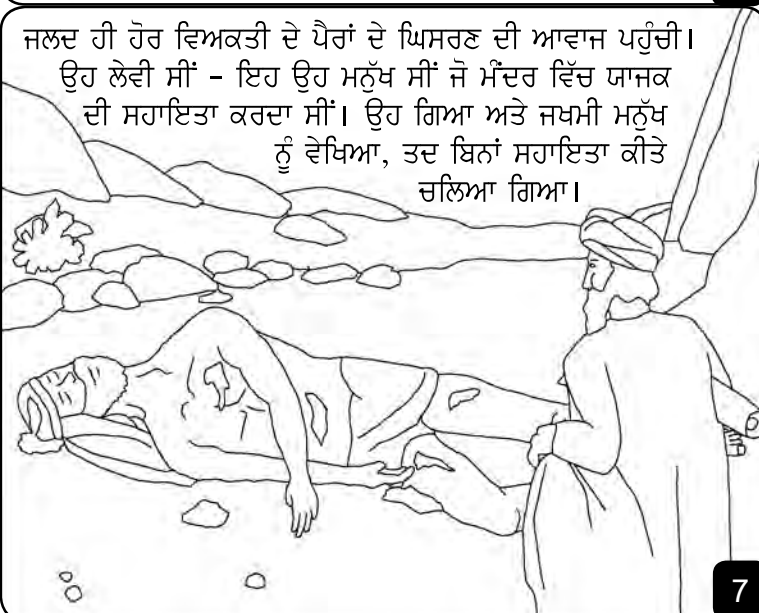 ਜਲਦ ਹੀ ਹੋਰ ਵਿਅਕਤੀ ਦੇ ਪੈਰਾਂ ਦੇ ਘਿਸਰਣ ਦੀ ਆਵਾਜ ਪਹੁੰਚੀ।
ਉਹ ਲੇਵੀ ਸੀਂ – ਇਹ ਉਹ ਮਨੁੱਖ ਸੀਂ ਜੋ ਮੰਦਰ ਵਿੱਚ ਯਾਜਕ
ਦੀ ਸਹਾਇਤਾ ਕਰਦਾ ਸੀਂ। ਉਹ ਗਿਆ ਅਤੇ ਜਖਮੀ ਮਨੁੱਖ
ਨੂੰ ਵੇਖਿਆ, ਤਦ ਬਿਨਾਂ ਸਹਾਇਤਾ ਕੀਤੇ
ਚਲਿਆ ਗਿਆ।
7